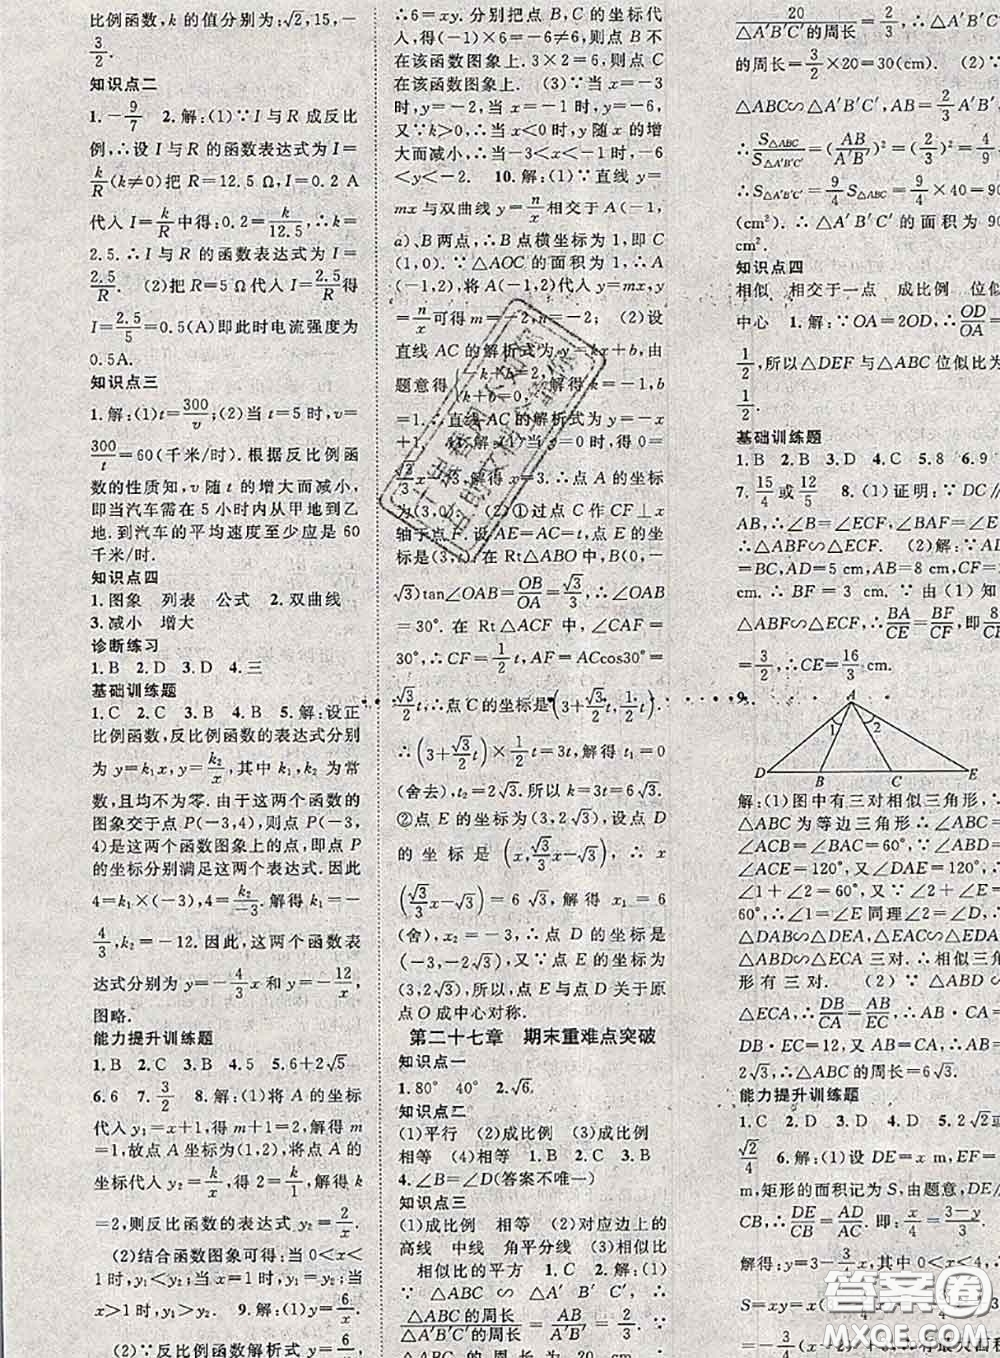 比例函数,k 的值分别为:√2,15,-
3/2.
知识点二
1.-9/7 2.解:(1)∵I 与 R 成反比
例,∴设 I 与 R 的函数表达式为 I=
k/R(k≠0)把 R=12.5 Ω,I=0.2 A
代入 I=k/R中得:0.2=k/12.5,∴k=
2.5.∴I 与 R 的函数表达式为 I=
2.5/R. (2)把 R=5 Ω 代入 I=2.5/R得
I=2.5/5=0.5(A)即此时电流强度为
0.5A.
知识点三
1.解:(1)t=300/v;(2)当 t=5 时,v=
300/t=60(千米/时).根据反比例函
数的性质知,v 随 t 的增大而减小,
即当汽车需在 5 小时内从甲地到乙
地.到汽车的平均速度至少应是 60
千米/时.
知识点四
1.图象 列表 公式 2.双曲线
3.减小 增大
诊断练习
1.B 2.D 3.D 4.三
基础训练题
1.C 2.C 3.B 4.B 5.解:设正
比例函数,反比例函数的表达式分别
为 y=k₁x,y=k₂/x,其中 k₁,k₂ 为常
数,且均不为零.由于这两个函数的
图象交于点 P(-3,4),则点 P(-3,
4)是这两个函数图象上的点,即点 P
的坐标分别满足这两个表达式.因此
4=k₁×(-3),4=k₂/-3.解得 k₁=
-4/3,k₂=-12.因此,这两个函数表
达式分别为 y=-4/3x 和 y=-12/x.
图略.
能力提升训练题
1.B 2.C 3.B 4.A 5.6+2√5
6.6 7.3/2 8.解:(1)将 A 坐标
代入 y₁=x+1,得 m+1=2=,解得 m
=1,故点 A 坐标为(1,2),将点 A 的
坐标代入 y₂=k/x,得 2=k/1,解得 k=
2,则反比例函数的表达式 y₂=2/x.
(2)结合函数图象可得:当 0<x<
1 时,y₁<y₂;当 x=1 时,y₁=y₂;当
x>1 时,y₁>y₂. 9.解:(1)y=6/x.
(2)∵反比例函数解析式 y=6/x,
∴6=xy.分别把点 B、C 的坐标代
入,得(-1)×6=-6≠6,则点 B 不
在该函数图象上.3×2=6,则点 C
在该函数图象上.(3)∵当 x=-3
时,y=-2,当 x=-1 时,y=-6,
又∵k>0,∴当 x<0 时,y 随 x 的增
大而减小,∴当-3<x<-1 时,-6
<y<-2. 10.解:(1)∵直线 y=
mx 与双曲线 y=n/x相交于 A(-1,
a)、B 两点,∴B 点横坐标为 1,即 C
(1,0).∵△AOC 的面积为 1,∴A
(-1,2),将 A(-1,2)代入 y=mx,y=
n/x可得 m=-2,n=-2; (2)设
直线 AC 的解析式为 y=kx+b,由
题意得 解得 k=-1,b=
1.∴直线 AC 的解析式为 y=-x+
(3,0). (2)①过点 C 作 CF⊥x
轴于点 F.设 AE=AC=t,点 E 的坐
标是(3,t),在 Rt△ABO 中,B(0,
√3)tan∠OAB=OB/OA=√3/3,∴∠OAB=
30°.在 Rt△ACF 中,∠CAF=30°,
∴CF=1/2t,AF=ACcos30°=
√3/2t,∴点 C 的坐标是(3+√3/2t,1/2t).
∴(3+√3/2t)×1/2t=3t,解得 t₁=0
(舍去),t₂=2√3.所以 k=3t=6√3.
②点 E 的坐标为(3,2√3),设点 D
的坐标是(x,√3/3x-√3),∴x
(√3/3x-√3)=6√3,解得 x₁=6
(舍),x₂=-3,∴点 D 的坐标是
(-3,-2√3),又∵点 E 的坐标为
(3,2√3),所以,点 E 与点 D 关于原
点 O 成中心对称.
第二十七章 期末重难点突破
知识点一
1.80° 40° 2.√6.
知识点二
(1)平行 (2)成比例 (3)成比例
相等 (4)相等 1.B 2.B 3.B
4.∠B=∠D(答案不唯一)
知识点三
(1)成比例 相等 (2)对应边上的
高线 中线 角平分线 (3)相似比
相似比的平方 1.C 2.解:(1)∵
△ABC∽△A′B′C′,AB/A′B′=2/3,
∴△ABC 的周长/△A′B′C′的周长=2/3,∴
20/△A′B′C′的周长=2/3,∴△A′B′C′
的周长=3/2×20=30(cm). (2)∵
△ABC∽△A′B′C′,AB=2/3A′B′,
∴S△ABC/S△A′B′C′=(AB/A′B′)²=(2/3)²=4/9.
∴S△A′B′C′=9/4S△ABC=9/4×40=90
(cm²).∴△A′B′C′的面积为 90
cm².
知识点四
相似 相交于一点 成比例 位似
中心 1.解:∵OA=2OD,∴OD/OA=
1/2,所以△DEF 与△ABC 位似比为
1/2.
基础训练题
1.B 2.B 3.D 4.C 5.8 6.9
7.15/4或12/5 8.(1)证明:∵DC∥
AB,∴∠B=∠ECF,∠BAF=∠E,
∴△ABF∽△ECF. (2)解:∵AD
=BC,AD=5 cm,AB=8 cm,CF=2
cm.∴BF=3 cm.∵由(1)知,
△ABF∽△ECF,∴BA/CE=BF/CF,即8/CE=
3/2,∴CE=16/3 cm.
9.
A
1 2
D B C E
解:(1)图中有三对相似三角形,∵
△ABC 为等边三角形,∴∠ABC=
∠ACB=∠BAC=60°,∴∠ABD=
∠ACE=120°,又∠DAE=120°,∴
∠1+∠2=60°,又∵∠2+∠E=
60°,∴∠1=∠E 同理∠2=∠D,∴
△DAB∽△DEA,△AEC∽△DEA,
△DAB∽△ECA 三对.∴图中相似三角
形有三对. (2)∵△ABD∽
△ECA,∴DB/AC=AB/EC,∴AB·AC=
DB·EC=12.∵AB=AC,∴AB=
2√3,∴△ABC 的周长=6√3.
能力提升训练题
1.C 2.D 3.D 4.C 5.2√2或
√2/4 6.解:(1)设 DE=x m,EF=y
m,矩形的面积记为 S,由题意,DE∥
CB,∴DE/CB=AD/AC.即:x/4=3-y/3,
解得:y=3-3/4x,其中 0<x<4,
答案圈
MXQE.COM